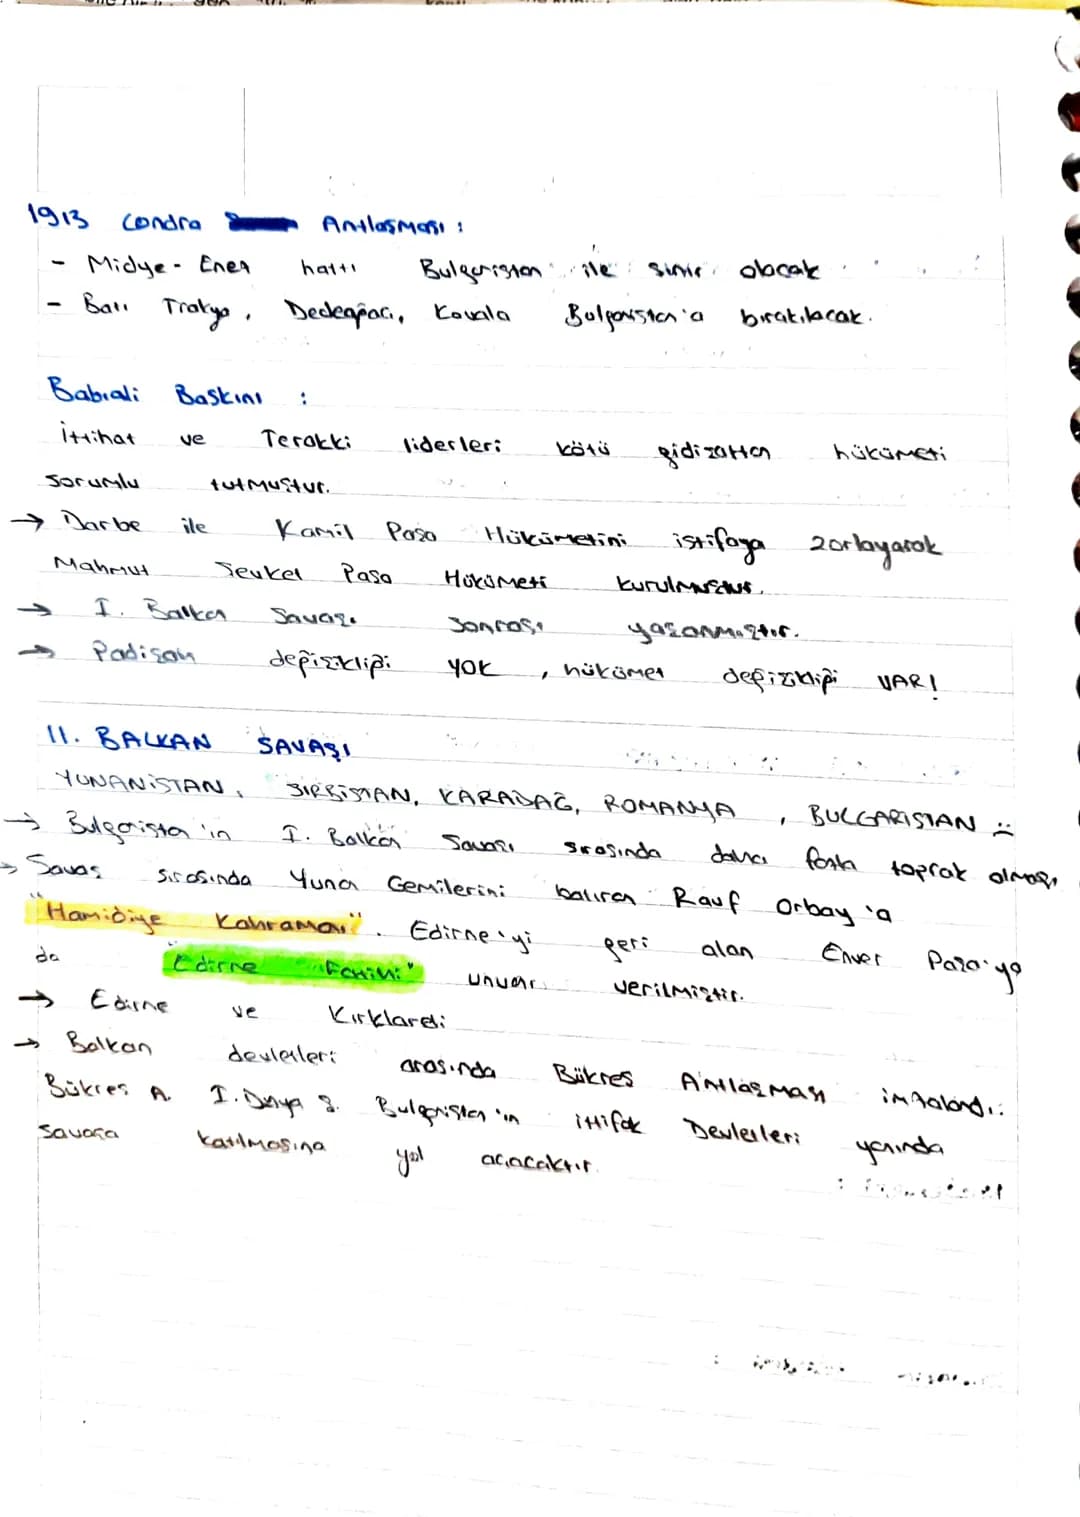 1913 Londra Antlaşması :
- Midye - Enez hattı Bulgaristan ile sınır olacak
- Batı Trakya, Dedeağacı, Kavala Bulgaristan'a bırakılacak.
Babıali Baskını :
İttihat ve Terakki liderleri kötü gidizattan hükümeti
sorumlu tutmuştur.
→ Darbe ile Kamil Paşa Hükümetini istifaya zorlayarak
Mahmut Şevket Paşa Hükümeti kurulmuştur.
→ I. Balkan Savaşı sonrası yaşanmıştır.
→ Padişah değişikliği YOK, hükümet değişikliği VAR!
II. BALKAN SAVAŞI
YUNANİSTAN, SIRBİSTAN, KARADAĞ, ROMANYA, BULGARİSTAN :(
→ Bulgaristan'ın I. Balkan Savaşı sırasında daha fazla toprak olması
→ Savaş sırasında Yunan Gemilerini batıran Rauf Orbay'a
"Hamidiye Kahramanı". Edirne'yi geri alan Enver Paşa'ya
da "Edirne Fatihi" unvanı verilmiştir.
→ Edirne ve Kırklareli
→ Balkan devletleri arasında Bükreş Antlaşması imzalandı.
Bükreş A. I. Dünya S. Bulgaristan'ın İttifak Devletleri yanında
savaşa katılmasına yol açacaktır.